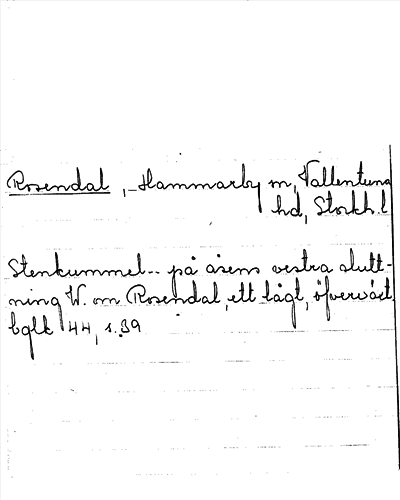 Rosendal, Hammarby m, Vallentuna
hd, Stockh. l
Stenkummel.. på åsens vestra slutt-
ning W. om Rosendal, ett lågt, öfverväxt.
bglk 44, s.39